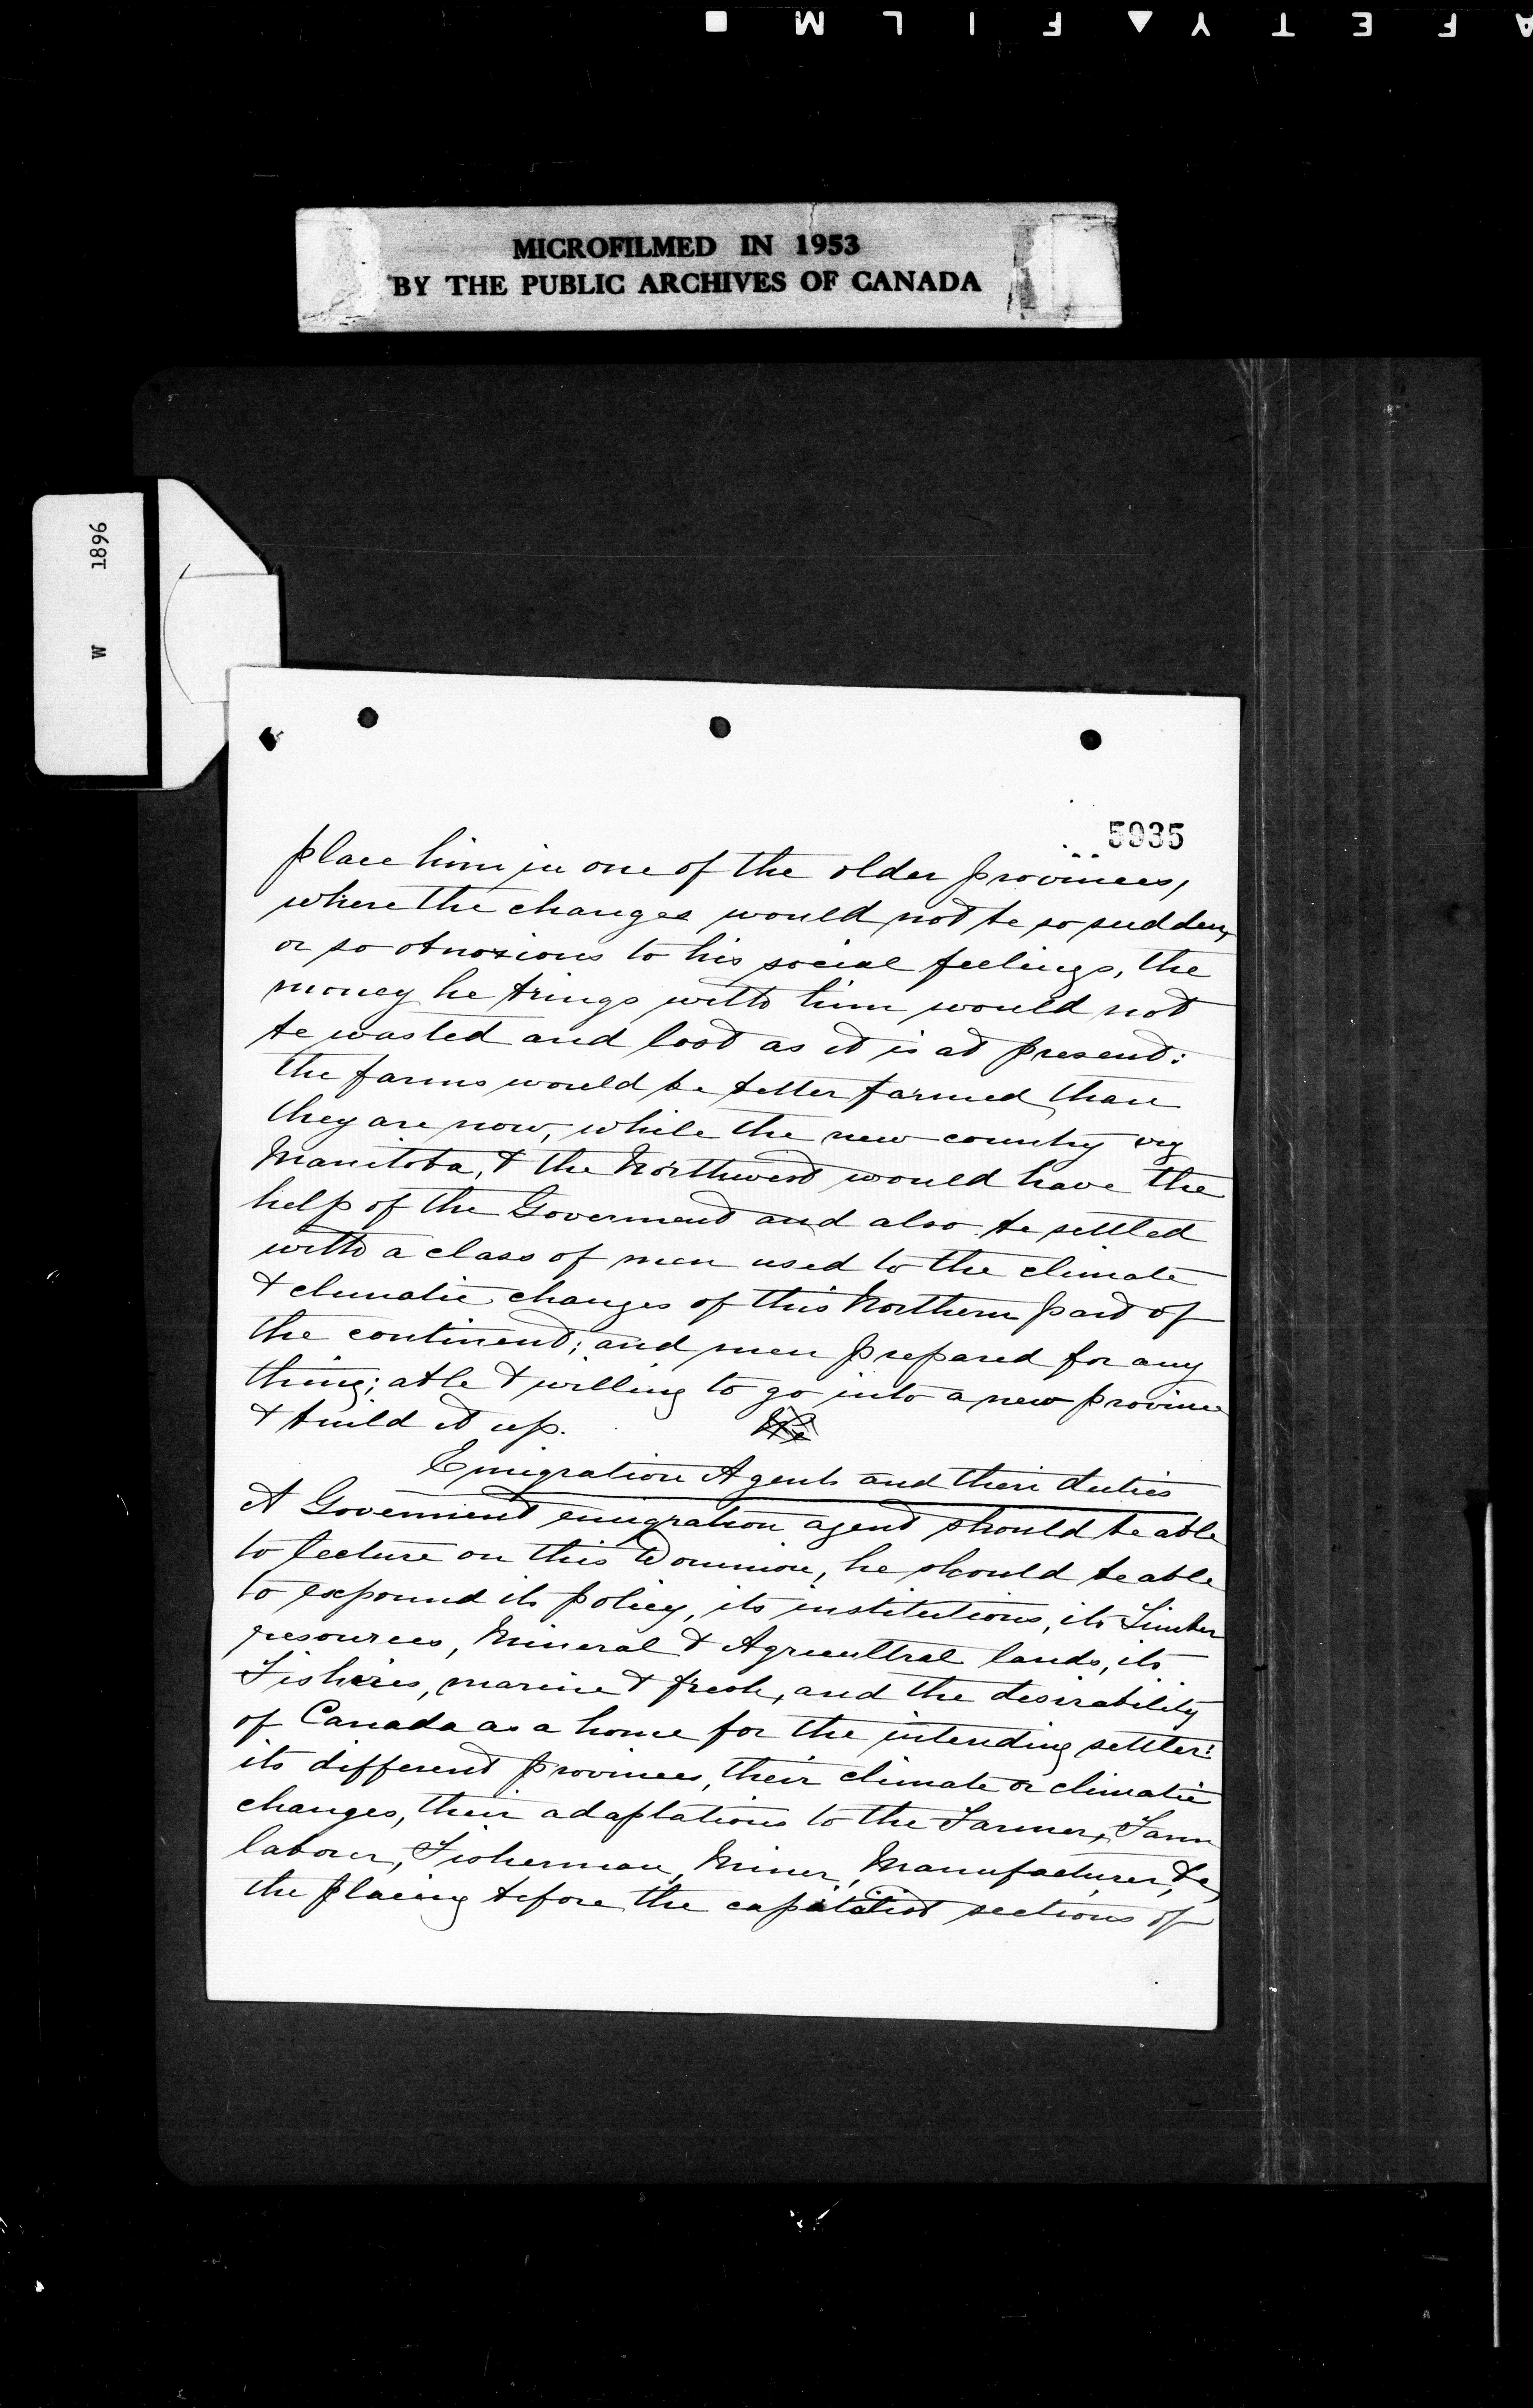 SAFETY▲FILM■
MICROFILMED IN 1953
BY THE PUBLIC ARCHIVES OF CANADA
W 1896
5935
place him in one of the older provinces,
where the changes would not be so sudden,
or so obnoxious to his social feelings, the
money he brings with him would not
be wasted and lost as it is at present:
the farms would be better farmed than
they are now, while the new country viz
Manitoba, & the Northwest would have the
help of the Goverment and also be settled
with a class of men used to the climate
& climatic changes of this Northern part of
the continent; and men prepared for any
thing; able & willing to go into a new province
& build it up.
Emigration Agents and their duties
A Goverment emigration agent should be able
to lecture on this Dominion, he should be able
to expound its policy, its institutions, its Timber
resources, Mineral & Agricultral lands, its
Fisheries, marine & fresh, and the desirability
of Canada as a home for the intending settler:
its different provinces, their climate or climatic
changes, their adaptations to the Farmer, Farm
labour, Fisherman, Miner, Manufacturer, &c,
the placing before the capitalist sections of